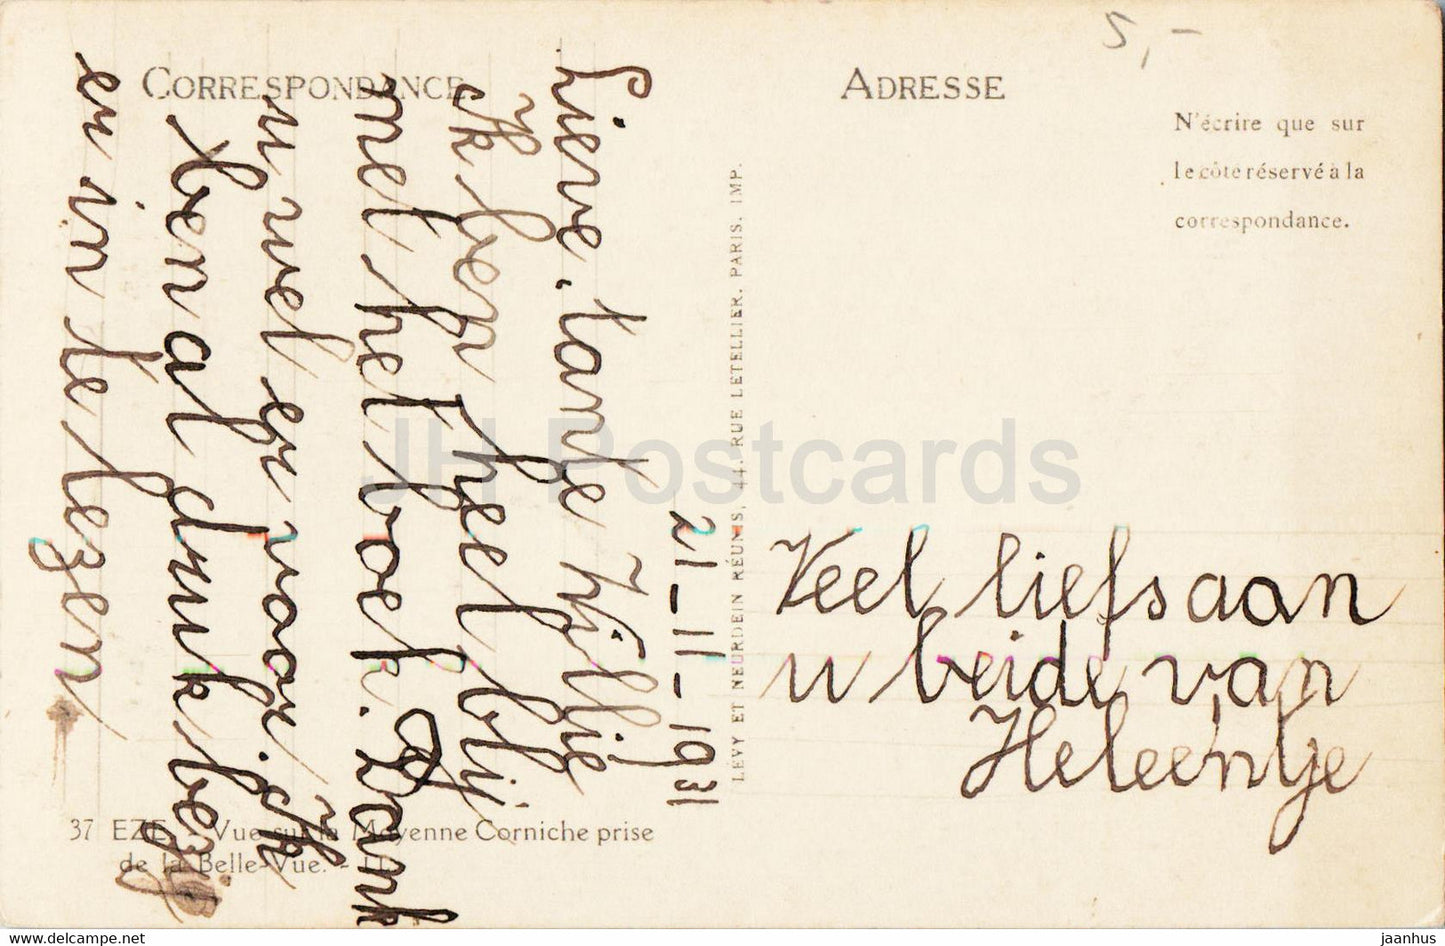 5,-
CORRESPONDANCE
ADRESSE
N'écrire que sur
le côté réservé à la
correspondance.
21-11-1931
Lieve tante Willie
Ik ben heel blij
met het boek. Dank
u wel er voor. Ik
ben al druk bezig
er in te lezen
Veel liefs aan
u beide van
Heleentje
LEVY ET NEURDEIN RÉUNIS, 44, RUE LETELLIER, PARIS. IMP.
37 EZE. - Vue sur la Moyenne Corniche prise
de la Belle-Vue. - LL
JH Postcards
www.delcampe.net
jaanhus